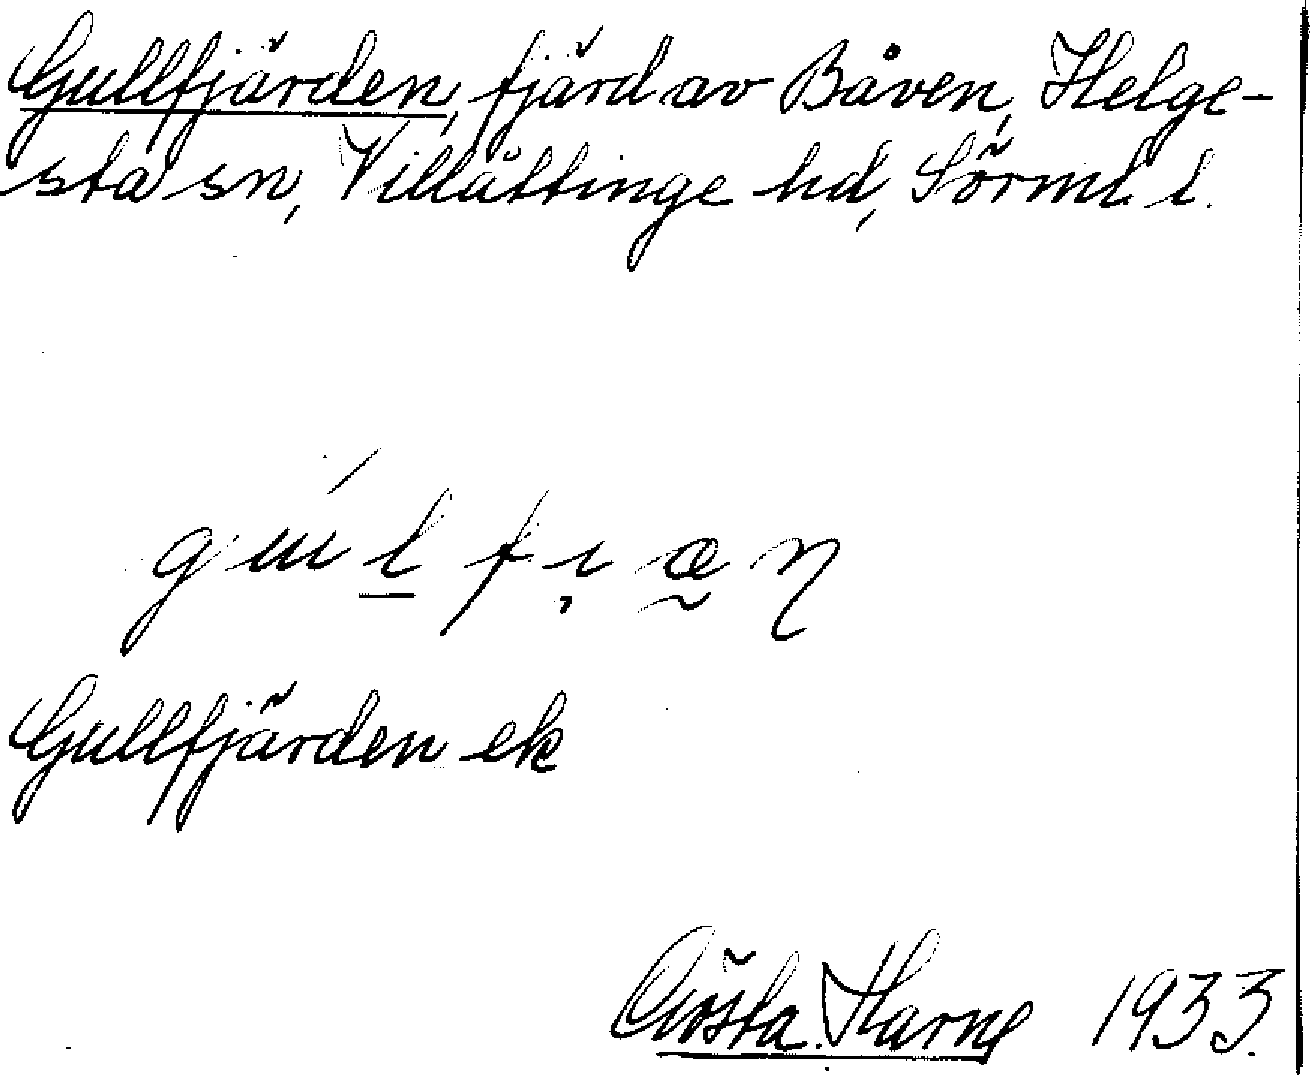 Gullfjärden, fjärd av Båven, Helge-
sta sn, Villåttinge hd, Sörml. l.
Gullfjärden ek
Gösta 1933.